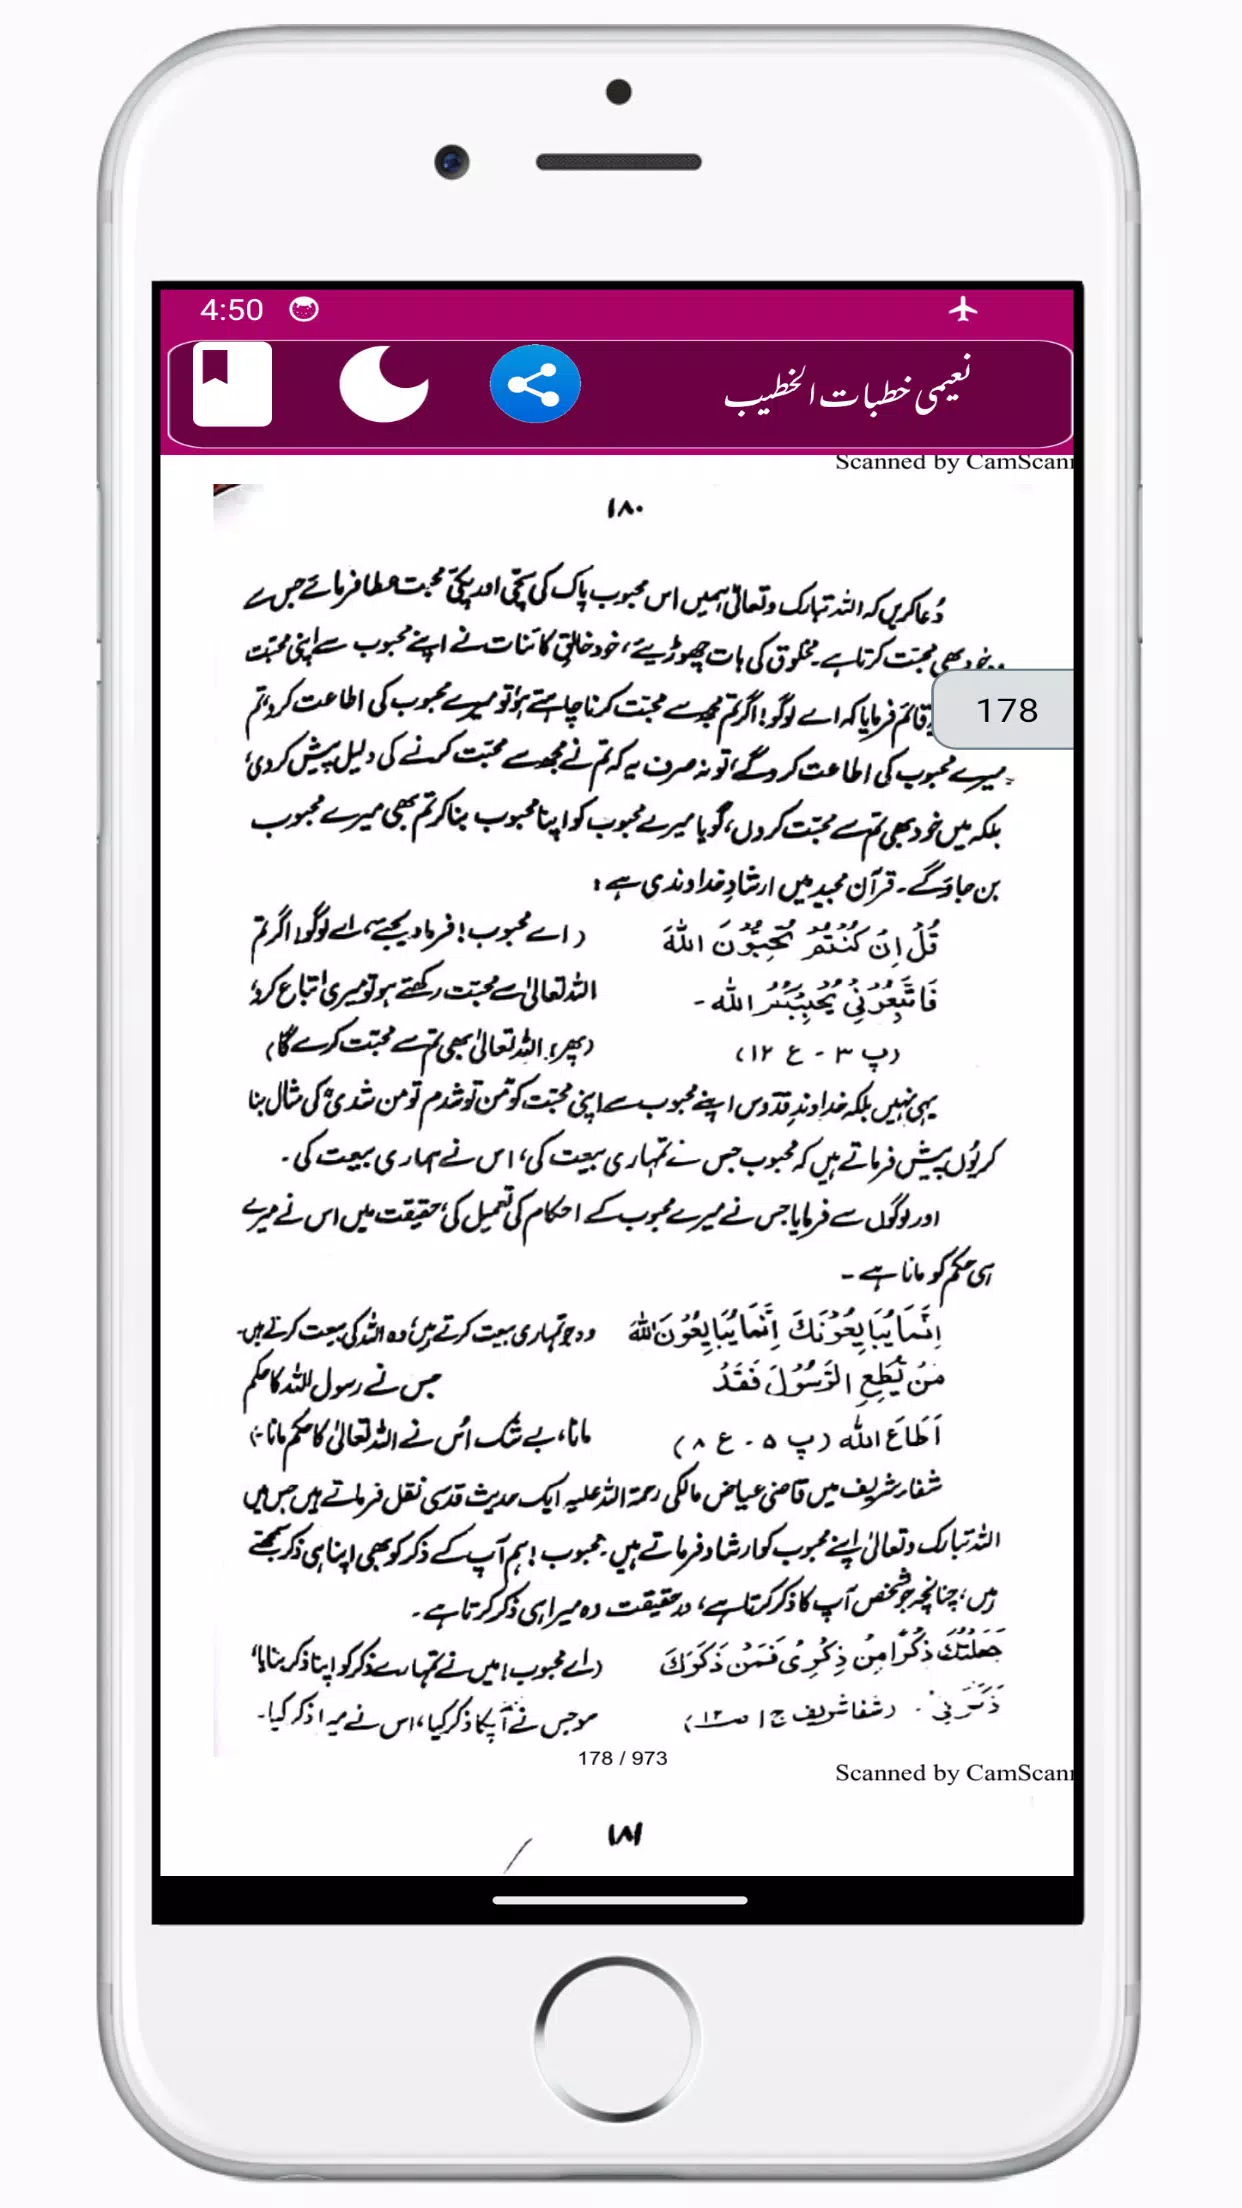 4:50
نعیمی خطبات الخطیب
Scanned by CamScann
۱۸۰
دُعا کریں کہ اللہ تبارک وتعالیٰ ہمیں اس محبوب پاک کی سچی اور پکی محبت عطا فرمائے جس سے
خود بھی محبّت کرتا ہے۔ مخلوق کی بات چھوڑیئے، خود خالقِ کائنات نے اپنے محبوب سے اپنی محبّت
178
قائم فرمایا کہ اے لوگو! اگر تم مجھ سے محبّت کرنا چاہتے ہو تو میرے محبوب کی اطاعت کرو، تم
میرے محبوب کی اطاعت کرو گے، تو نہ صرف یہ کہ تم نے مجھ سے محبّت کرنے کی دلیل پیش کردی،
بلکہ میں خود بھی تم سے محبّت کروں، گویا میرے محبوب کو اپنا محبوب بنا کر تم بھی میرے محبوب
بن جاؤ گے۔ قرآن مجید میں ارشادِ خداوندی ہے:
قُلْ اِنْ كُنْتُمْ تُحِبُّوْنَ اللهَ (اے محبوب! فرما دیجئے، اے لوگو! اگر تم
فَاتَّبِعُوْنِيْ يُحْبِبْكُمُ الله۔ اللہ تعالیٰ سے محبّت رکھتے ہو تو میری اتباع کرو،
(پ ۳ - ع ۱۲) (پھر) اللہ تعالیٰ بھی تم سے محبّت کرے گا)
یہی نہیں بلکہ خداوندِ قدّوس اپنے محبوب سے اپنی محبّت کو ”من تو شدم تو من شدی“ کی مثال بنا
کر یُوں پیش فرماتے ہیں کہ محبوب جس نے تمہاری بیعت کی، اس نے ہماری بیعت کی۔
اور لوگوں سے فرمایا جس نے میرے محبوب کے احکام کی تعمیل کی، حقیقت میں اس نے میرے
ہی حکم کو مانا ہے۔
اِنَّمَا يُبَايِعُوْنَكَ اِنَّمَا يُبَايِعُوْنَ اللهَ وہ جو تمہاری بیعت کرتے ہیں، وہ اللہ کی بیعت کرتے ہیں۔
مَنْ يُّطِعِ الرَّسُوْلَ فَقَدْ جس نے رسول اللہ کا حکم
اَطَاعَ الله (پ ۵ - ع ۸) مانا، بے شک اُس نے اللہ تعالیٰ کا حکم مانا۔)
شفاء شریف میں قاضی عیاض مالکی رحمۃ اللہ علیہ ایک حدیث قدسی نقل فرماتے ہیں جس میں
اللہ تبارک وتعالیٰ اپنے محبوب کو ارشاد فرماتے ہیں۔ محبوب! ہم آپ کے ذکر کو بھی اپنا ہی ذکر سمجھتے
ہیں، چنانچہ جو شخص آپ کا ذکر کرتا ہے، درحقیقت وہ میرا ہی ذکر کرتا ہے۔
جَعَلْتُكَ ذِكْرًا مِنْ ذِكْرِىْ فَمَنْ ذَكَرَكَ (اے محبوب! میں نے تمہارے ذکر کو اپنا ذکر بنایا،
ذَكَرَنِيْ۔ (شفا شریف ج ۱ ص۱۲) سو جس نے آپ کا ذکر کیا، اس نے میرا ذکر کیا۔
178 / 973
Scanned by CamScann
۱۸۱